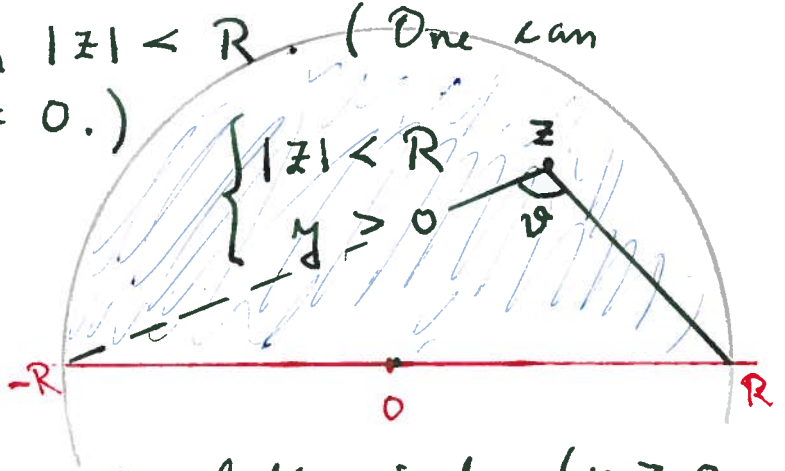 |z| < R. (One can
= 0.)
{ |z| < R
y > 0
z
ϑ
-R
0
R